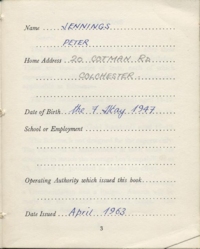 Name JENNINGS
PETER
Home Address 20 COTMAN RD
COLCHESTER
Date of Birth the 9 May 1947
School or Employment
Operating Authority which issued this book
Date Issued April 1963
3